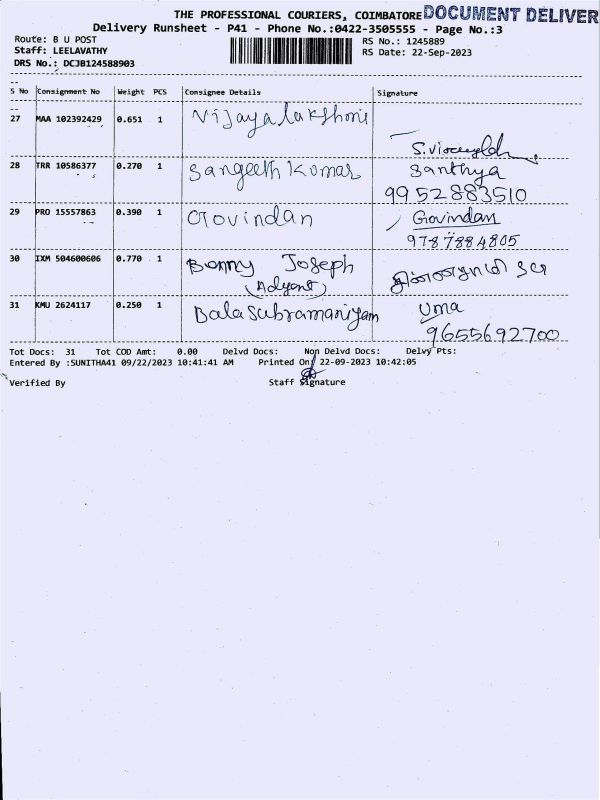 THE PROFESSIONAL COURIERS, COIMBATORE DOCUMENT DELIVER
Delivery Runsheet - P41 - Phone No.:0422-3505555 - Page No.:3
Route: B U POST RS No.: 1245889
Staff: LEELAVATHY RS Date: 22-Sep-2023
DRS No.: DCJB124588903
S No Consignment No Weight PCS Consignee Details Signature
27 MAA 102392429 0.651 1 Vijayalakshmi
28 TRR 10586377 0.270 1 Sangeeth Kumar Santhya
9952883510
29 PRO 15557863 0.390 1 Govindan Govindan
9787884805
30 IXM 504600606 0.770 1 Bonny Joseph
31 KMU 2624117 0.250 1 Balasubramaniyam Uma
9655692700
Tot Docs: 31 Tot COD Amt: 0.00 Delvd Docs: Non Delvd Docs: Delvy Pts:
Entered By :SUNITHA41 09/22/2023 10:41:41 AM Printed On: 22-09-2023 10:42:05
Verified By Staff Signature